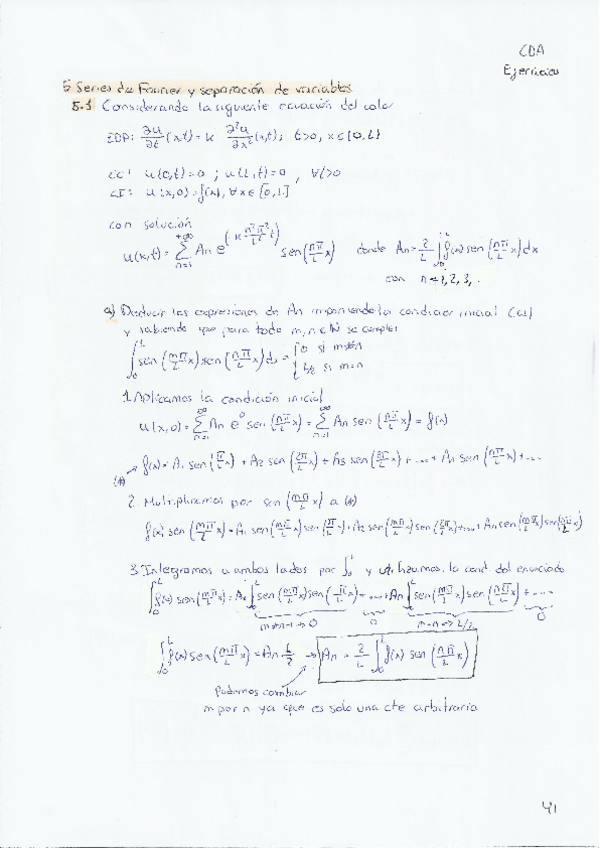 CDA
Ejercicios
5 Series de Fourier y separación de variables
5.1 Considerando la siguiente ecuación del calor
EDP: ∂u/∂t (x,t) = k ∂²u/∂x² (x,t); t>0, x∈[0,L]
CC: u(0,t)=0 ; u(L,t)=0 , ∀t>0
CI: u(x,0)=f(x), ∀x∈[0,L]
con solución
u(x,t) = Σ_{n=1}^{+∞} An e^(k n²π²/L² t) sen(nπ/L x) donde An = 2/L ∫_0^L f(x) sen(nπ/L x) dx
con n=1,2,3,..
a) Deducir las expresiones de An imponiendo la condición inicial (CI)
y sabiendo que para todo m,n∈ℕ se cumple:
∫_0^L sen(mπ/L x) sen(nπ/L x) dx = { 0 si m≠n
L/2 si m=n
1. Aplicamos la condición inicial
u(x,0) = Σ_{n=1}^{∞} An e^0 sen(nπ/L x) = Σ_{n=1}^{∞} An sen(nπ/L x) = f(x)
(*) f(x) = A1 sen(π/L x) + A2 sen(2π/L x) + A3 sen(3π/L x) + .... + An sen(nπ/L x) + ....
2. Multiplicamos por sen(mπ/L x) a (*)
f(x) sen(mπ/L x) = A1 sen(mπ/L x) sen(π/L x) + A2 sen(mπ/L x) sen(2π/L x) + .... + An sen(mπ/L x) sen(nπ/L x)
3. Integramos a ambos lados por ∫_0^L y utilizamos la cond. del enunciado
∫_0^L f(x) sen(mπ/L x) = A1 ∫_0^L sen(mπ/L x) sen(π/L x) + .... + An ∫_0^L sen(mπ/L x) sen(nπ/L x) + ....
m≠n=1 → 0 0 m=n => L/2 0
∫_0^L f(x) sen(mπ/L x) = An L/2 → An = 2/L ∫_0^L f(x) sen(nπ/L x)
Podemos cambiar
m por n ya que es solo una cte arbitraria
41